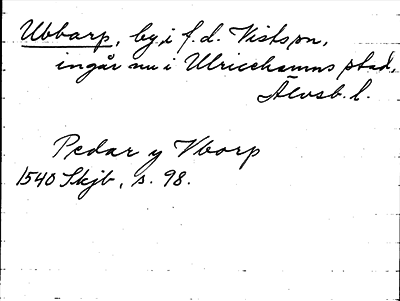 Ubbarp, by i f. d. Vists sn,
ingår nu i Ulricehamns stad,
Älvsb. l.
Pedar y Vborp
1540 Skjb, s. 98.